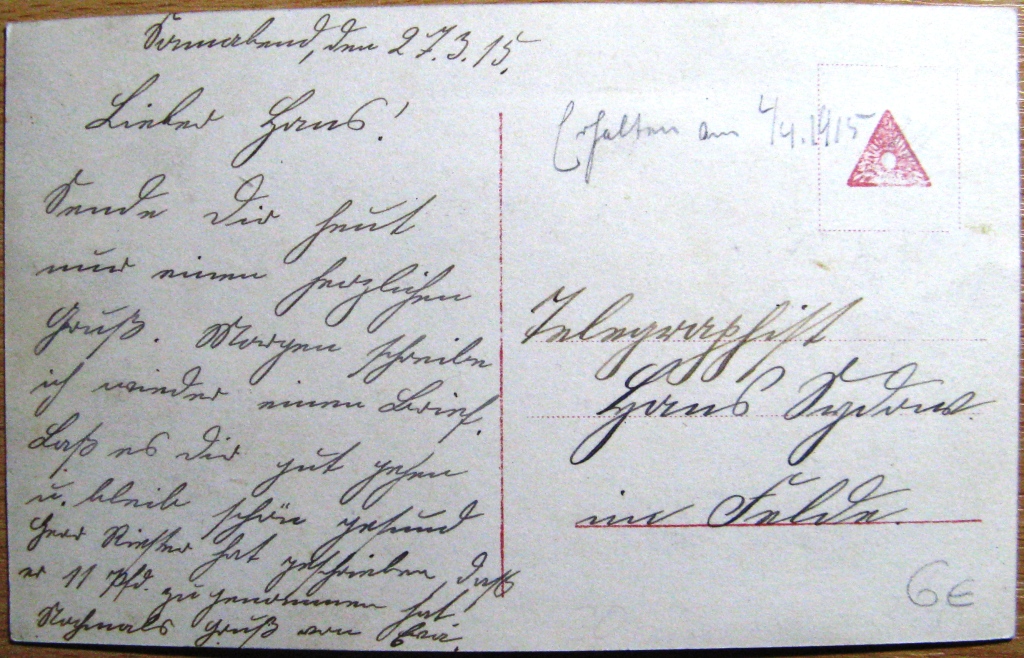 Sonnabend, den 27.3.15.
Lieber Hans!
Sende Dir heut
nur einen herzlichen
Gruß. Morgen schreibe
ich wieder einen Brief.
Laß es Dir gut gehen
u. bleib schön gesund
Herr Richter hat geschrieben, daß
er 11 Pfd. zu genommen hat
Nochmals Gruß von
Erhalten am 4/4.1915
Telegraphist
Hans Sydow
im Felde.
6€